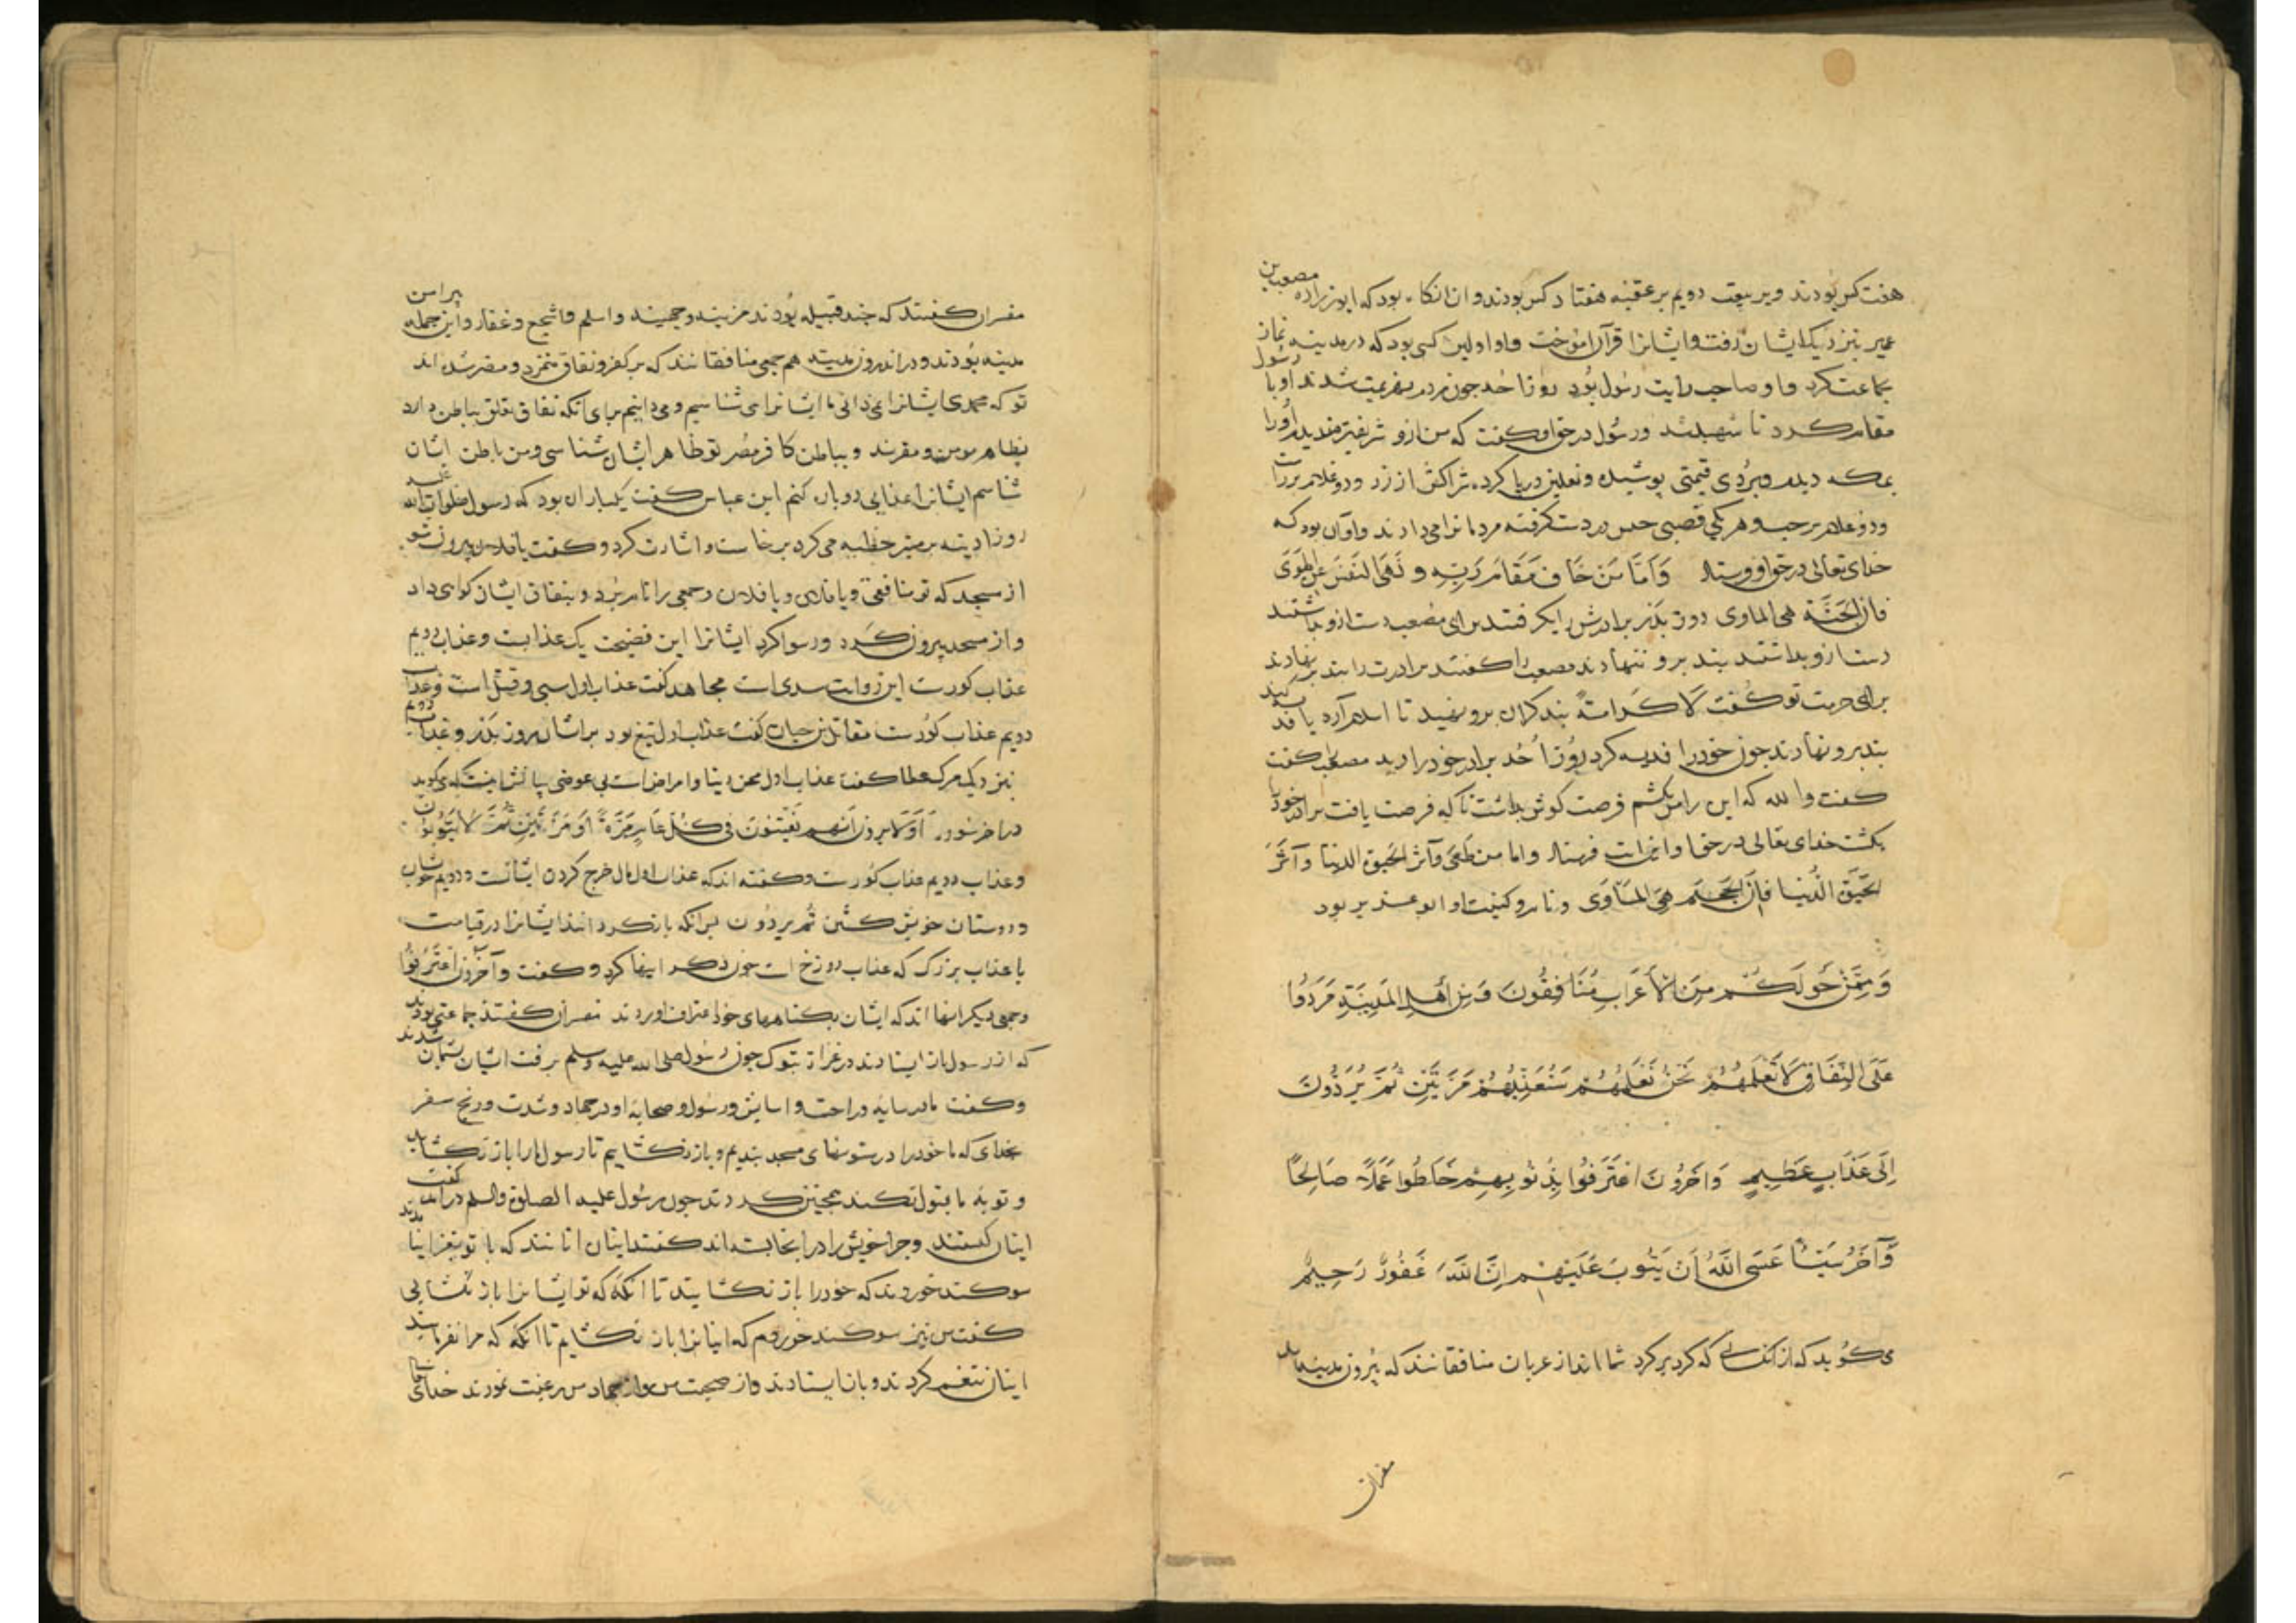 هفت کس بودند و بر بیعت دویم بر عقبه هفتاد کس بودند و ان انکاه بود که ابو زراره مصعب بن
عمیر بنزدیک ایشان رفت و ایشانرا قرآن اموخت و او اولین کسی بود که در مدینه نماز
جماعت کرد و او صاحب رایت رسول بود روز احد چون مردم بهزیمت شدند او با رسول
مقام کرد تا شهید شد و رسول در حق او کفت که من ازو شریفتر ندیدم اورا
بمکه دیدم و بردی قیمتی پوشیده و نعلین در پا کرده شراکش از زر و دو غلام بر راست
و دو غلام بر چپ و هر یکی قصبی حیس در دست کرفته مردمانرا می دادند و او آن بود که
خدای تعالی در حق او فرستاد وَاَمَّا مَنْ خَافَ مَقَامَ رَبِّهِ وَ نَهَى النَّفْسَ عَنِ الْهَوَى
فان الجَنَّةَ هی الماوی روز بدر برادرش را بکرفتند برای مصعب دست ازو بداشتند
دست ازو بداشتند بند برو ننهادند مصعب را کفتند برادرت را بند بر ننهادند
برای حرمت تو کفت لَا كَرَامَةً بند کران برو نهید تا اسلام آرد یا فدیه کند
بند برو نهادند چون خودرا فدیه کرد روز اُحُد برادر خودرا دید مصعب کفت
کفت والله که این را من بکشم فرصت کوش بداشت تا که فرصت یافت برادر خودرا
بکشت خدای تعالی در حق او این ایت فرستاد و اما من طَغَى وَآثر الحَیوة الدنیا وَ آثَرَ
الحَیَوةَ الدُّنیا فاِنَّ الجَحِیمَ هِیَ المَاْوَى و نام و کنیت او ابو عزیز بود
وَ مِمَّنْ حَوْلَكُمْ مِنَ الْاَعْرَابِ مُنَافِقُونَ وَ مِنْ اَهْلِ الْمَدِینَةِ مَرَدُوا
عَلَى النِّفَاقِ لَا تَعْلَمُهُمْ نَحْنُ نَعْلَمُهُمْ سَنُعَذِّبُهُمْ مَرَّتَیْنِ ثُمَّ یُرَدُّونَ
اِلَى عَذَابٍ عَظِیمٍ وَ اَخَرُونَ اعْتَرَفُوا بِذُنُوبِهِمْ خَلَطُوا عَمَلًا صَالِحًا
وَ آخَرَ سَیِّئًا عَسَى اللَّهُ اَنْ یَتُوبَ عَلَیْهِمْ اِنَّ اللَّهَ غَفُورٌ رَحِیمٌ
می کوید که از کسانی که کرد بر کرد شمااند از عربان منافقانند که بیرون مدینه اند
مفسران
مفسران کفتند که چند قبیله بودند مزینه و جهینه و اسلم و اشجع و غفار و این جمله پیرامن
مدینه بودند و در اندرون مدینه هم جمعی منافقانند که بر کفر و نفاق متمرد و مصر شده اند
تو که محمدی ایشانرا نمی دانی ما ایشانرا می شناسیم و می دانیم برای آنکه نفاق تعلق بباطن دارد
بظاهر مومن و مقرند و بباطن کافر و مصر تو ظاهر ایشان شناسی و من باطن ایشان
شناسم ایشانرا عذابی دوباره کنم ابن عباس کفت یکبار ان بود که رسول صلوات الله علیه
روز ادینه بر منبر خطبه می کرد برخاست و اشارت کرد و کفت یا فلان بیرون شو
از مسجد که تو منافقی و یا فلان و یا فلان و جمعی را نام برد و بنفاق ایشان کواهی داد
و از مسجد بیرون کرد و رسوا کرد ایشانرا این فضیحت یک عذابست و عذاب دویم
عذاب کورست این روایت سدی است مجاهد کفت عذاب اول سبی و قتل است و عذاب
دویم عذاب کورست مقاتل بن حیان کفت عذاب اول تیغ بود بر ایشان بروز بدر و عذاب دویم
بنزدیک مرک عطا کفت عذاب اول محن دنیا و امراض است بی عوضی
در اخر سوره اَوَلَا یَرَوْنَ اَنَّهُمْ یُفْتَنُونَ فِی كُلِّ عَامٍ مَرَّةً اَوْ مَرَّتَیْنِ ثُمَّ لَا یَتُوبُونَ
و عذاب دویم عذاب کورست و کفته اند که عذاب اول مال خرج کردن ایشانست و دویم
و دوستان خویش کشتن ثم یردون پس انکه باز کردانند ایشانرا در قیامت
با عذاب بزرک که عذاب دوزخ است چون ذکر اینها کرد و کفت و آخرون اعْتَرَفُوا
و جمعی دیکر انها اند که ایشان بکناههای خود اعتراف اوردند مفسران کفتند جماعتی بودند
که از رسول باز ایستادند در غزاة تبوک چون رسول صلی الله علیه وسلم برفت ایشان پشیمان شدند
و کفت ما در سایه و راحت و اسایش و رسول و صحابه او در جهاد و شدت و رنج سفر
بخدای که ما خودرا در ستونهای مسجد بندیم و باز نکشاییم تا رسول مارا باز نکشاید
و توبه ما قبول نکند همچنین کردند چون رسول علیه الصلوة والسلم درامد کفت
اینان کیستند و چرا خویش را در اینجا بسته اند کفتند اینان انانند که با تو بغزا نیامدند
سوکند خوردند که خودرا باز نکشایند تا انکه که تو ایشانرا باز نکشایی
کفت من نیز سوکند خوردم که اینانرا باز نکشایم تا انکه که مرا نفرمایند
اینان تنعم کردند و باز ایستادند و از صحبت من و از جهاد من رغبت نمودند خدای تعالی